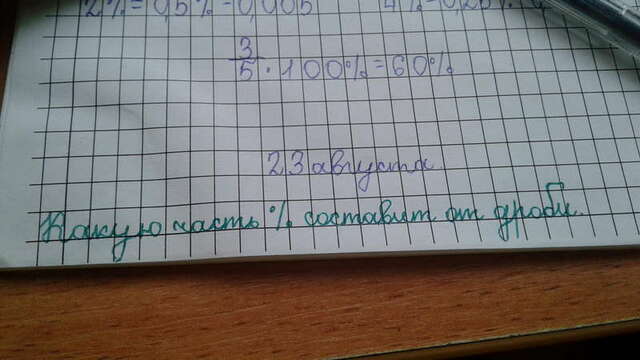 2% = 0,5% = 0,005
3/5 · 100% = 60%
23 августа.
Какую часть % составит от дроби.